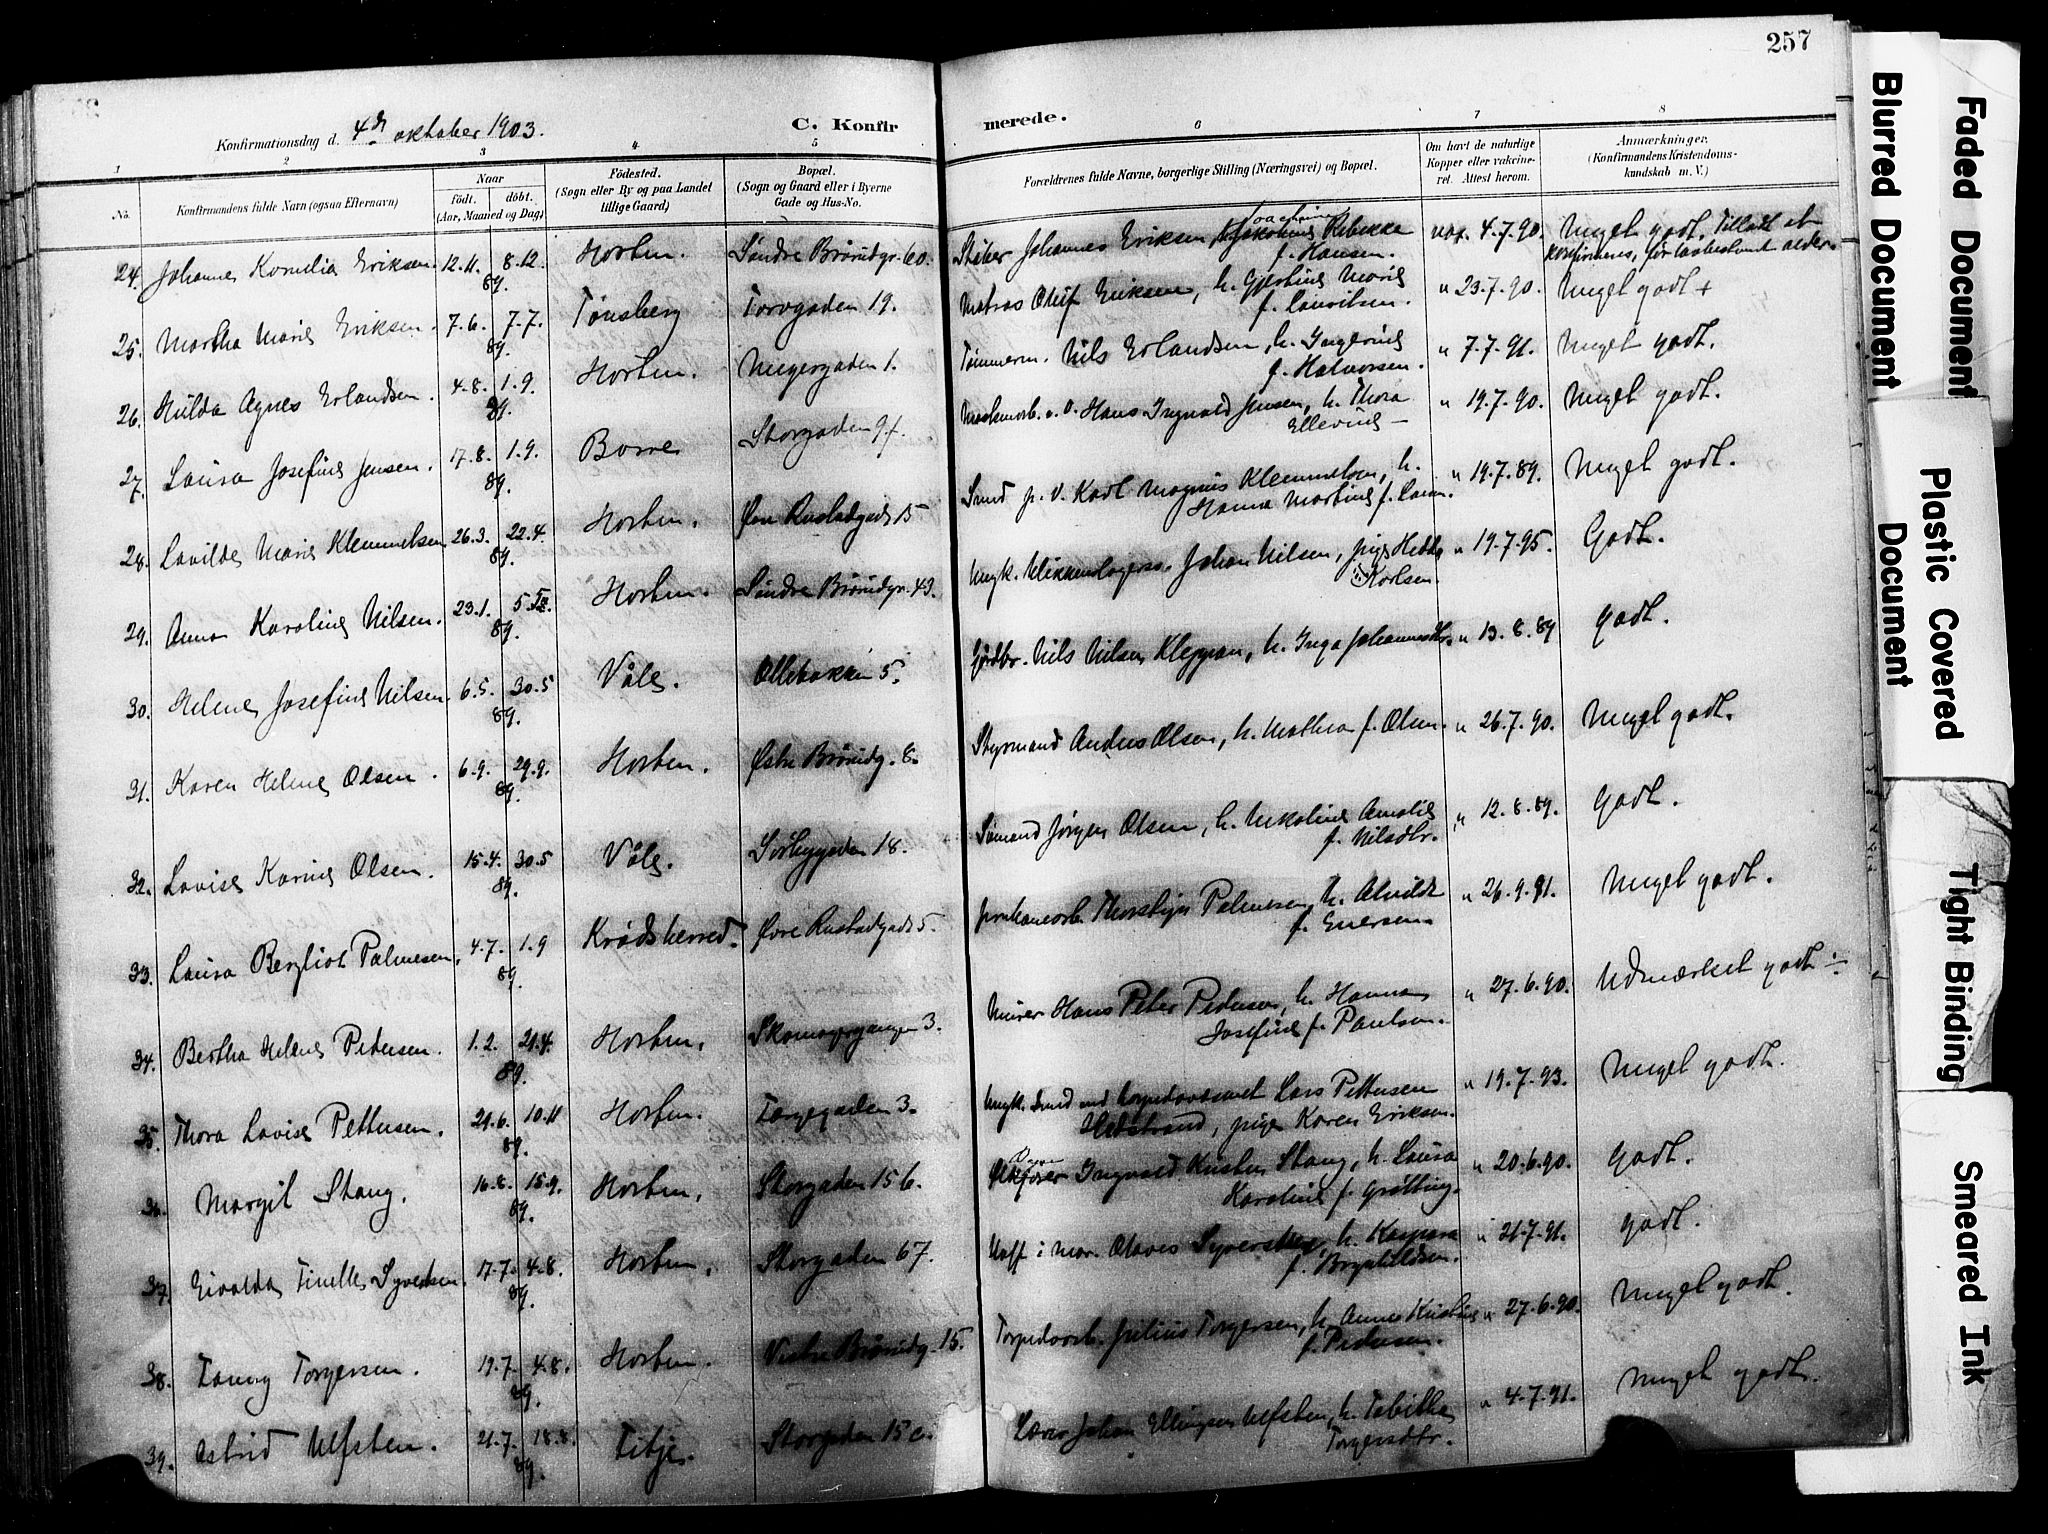 257
Konfirmationsdag d. 4de oktober 1903.
C. Konfir
merede.
1
2
3
4
5
6
7
8
No.
Konfirmandens fulde Navn (ogsaa Efternavn)
Naar
födt.
döbt.
(Aar, Maaned og Dag)
Födested.
(Sogn eller By og paa Landet
tillige Gaard)
Bopæl.
(Sogn og Gaard eller i Byerne
Gade og Hus-No.
Forældrenes fulde Navne, borgerlige Stilling (Næringsvei) og Bopæl.
Om havt de naturlige
Kopper eller vakcine-
ret. Attest herom.
Anmærkninger.
(Konfirmandens Kristendoms-
kundskab m. V.)
24. Johanne Kornelia Eriksen. 12.11. 8.12. 89. Horten. Söndre Brårudgr. 60. Johannes Eriksen, Rebekka
f. Hansen. vax. 4.7.90. Meget godt. Tilladt at
konfirmeres, før lovbestemt alder.
25. Martha Marie Eriksen. 7.6. 7.7. 89. Tønsberg Torvgaden 19. Matros Oluf Eriksen, h. Marie
f. Lauritsen. " 23.7.90. Meget godt +
26. Hilda Agnes Erlandsen. 4.8. 1.9. 89. Horten. Meyergaden 1. Tømmerm. Nils Erlandsen, h. Ingerine
f. Halvorsen. " 7.7.91. Meget godt.
27. Laura Josefine Jensen. 17.8. 1.9. 89. Borre Storgaden 97. Hans Ingvald Jensen, h. Thora
Ellevine " 19.7.90. Meget godt.
28. Lavilde Marie Klemmetsen 26.3. 22.4. 89. Horten. Øvre Rustadgade 15 Smed p. v. Karl Magnus Klemmetsen, h.
Hanna Martine f. Larsen. " 19.7.89. Meget godt.
29. Anna Karoline Nilsen. 23.1. 5. 89. Horten. Söndre Brårudgr. 43. Johan Nilsen, pige Hedda
Karlsen. " 19.7.95. Godt.
30. Helene Josefine Nilsen. 6.5. 30.5 89. Våle. Ollebakken 5. Gårdbr. Nils Nilsen Kleppan, h. Inga Johannesdtr. " 13.8.89 godt.
31. Karen Helene Olsen. 6.9. 29.9. 89. Horten. Østre Brårudg. 8. Styrmand Anders Olsen, h. Mathea f. Olsen. " 26.7.90. Meget godt.
32. Lovise Karine Olsen. 15.4. 30.5 89. Våle. Sørbygaden 18. Sømand Jørgen Olsen, h. Nikoline Amalie
f. Nilsdtr. " 12.8.89. Godt.
33. Laura Bergliot Palmesen, 4.7. 1.9 89. Krødsherred. Øvre Rustadgade 5. Thorstein Palmesen, h. Alvilde
f. Iversen " 26.9.91. Meget godt.
34. Bertha Helene Pedersen. 1.2. 21.4. 89. Horten. Skomagergangen 3. Murer Hans Peter Pedersen, h. Hanna
Josefine f. Paulsen. " 27.6.90. Udmærket godt ÷
35. Thora Lovise Pettersen. 21.6. 10.11 89. Horten. Færgegaden 3. Ungk. Smed ved torpedovæsenet Lars Pettersen
Hedstrand, pige Karen Eriksen. " 19.7.93. Meget godt.
36. Margit Stang. 16.8. 15.9. 89. Horten. Storgaden 15 b. Ingvald Kristian Stang, h. Laura
Karoline f. Grötting. " 20.6.90. Godt.
37. Eivalda Tinelle Syvertsen. 17.7. 4.8. 89. Horten. Storgaden 67. Uoff. i mar. Olaves Syversen, h. Kaspara
f. Bryntildsen. " 21.7.91. Godt.
38. Fanny Torgersen. 19.7. 4.8. 89. Horten. Vestre Brårudg. 15. Torpedoarb. Julius Torgersen, h. Anne Kristine
f. Pedersen. " 27.6.90. Meget godt.
39. Astrid Ulfsten. 21.7. 18.8. 89. Titje. Storgaden 15 c. Lærer Johan Ellingsen Ulfsten, h. Tabitha
Torgersdtr. " 4.7.91. Meget godt.
Faded Document
Blurred Document
Plastic Covered
Document
Tight Binding
Smeared Ink